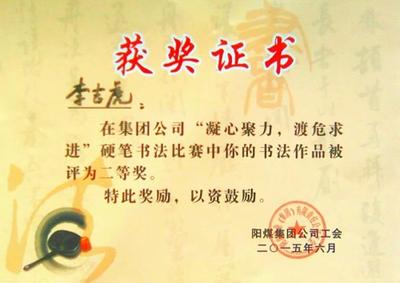 获奖证书
李吉虎:
在集团公司“凝心聚力，渡危求
进”硬笔书法比赛中你的书法作品被
评为二等奖。
特此奖励，以资鼓励。
阳煤集团公司工会
二〇一五年六月